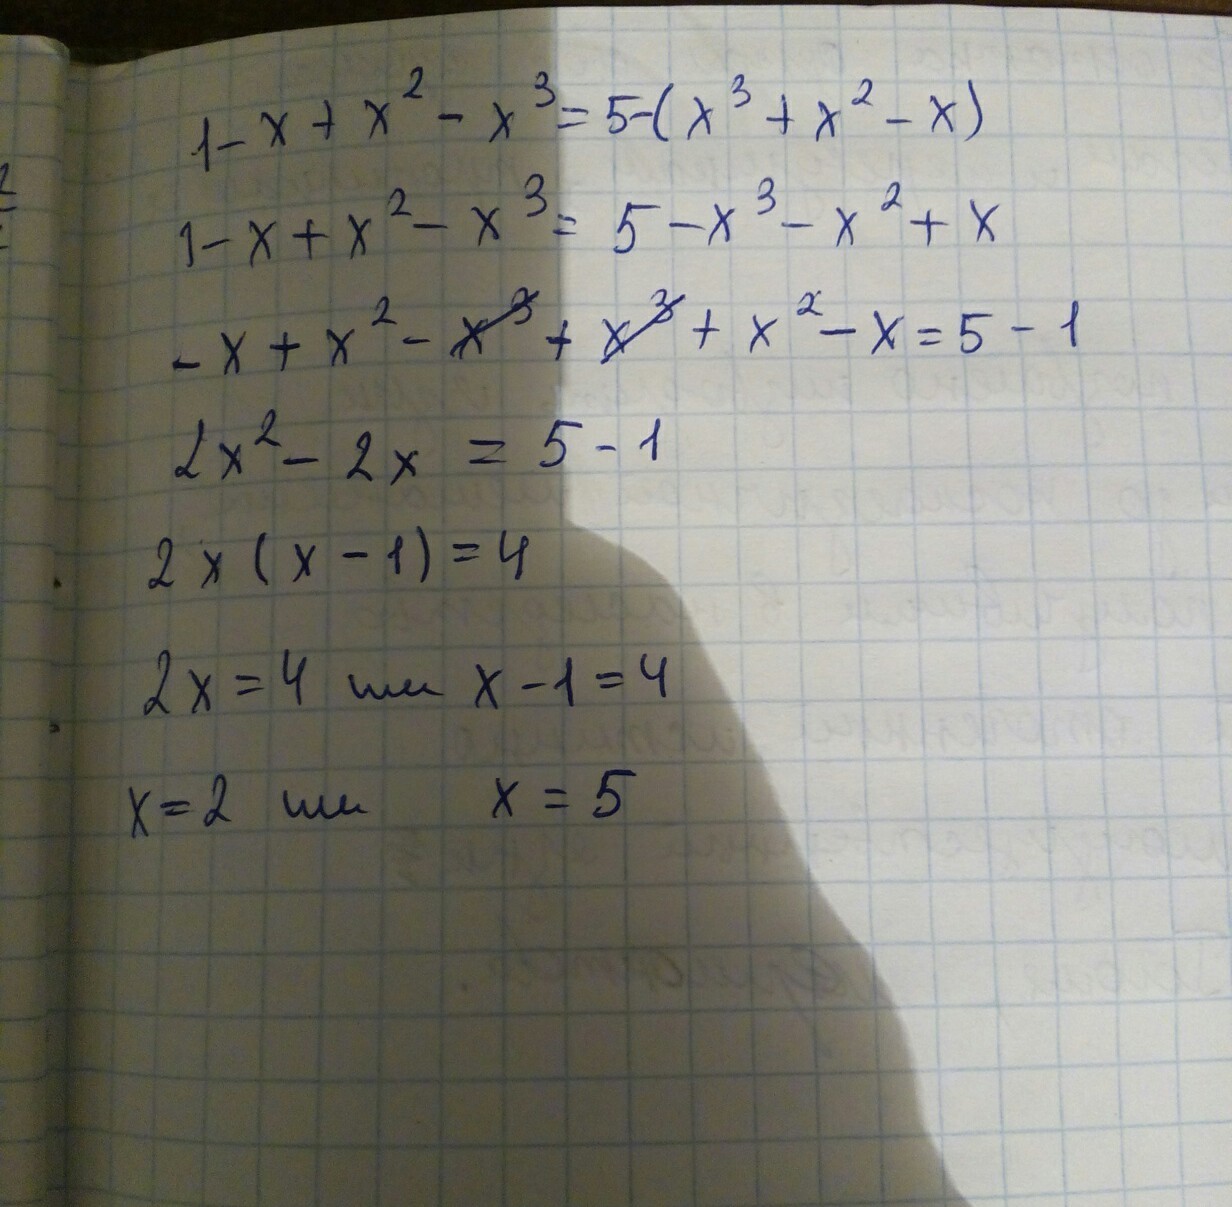 1 - x + x² - x³ = 5 - (x³ + x² - x)
1 - x + x² - x³ = 5 - x³ - x² + x
- x + x² - x³ + x³ + x² - x = 5 - 1
2x² - 2x = 5 - 1
2x (x - 1) = 4
2x = 4 или x - 1 = 4
x = 2 или x = 5